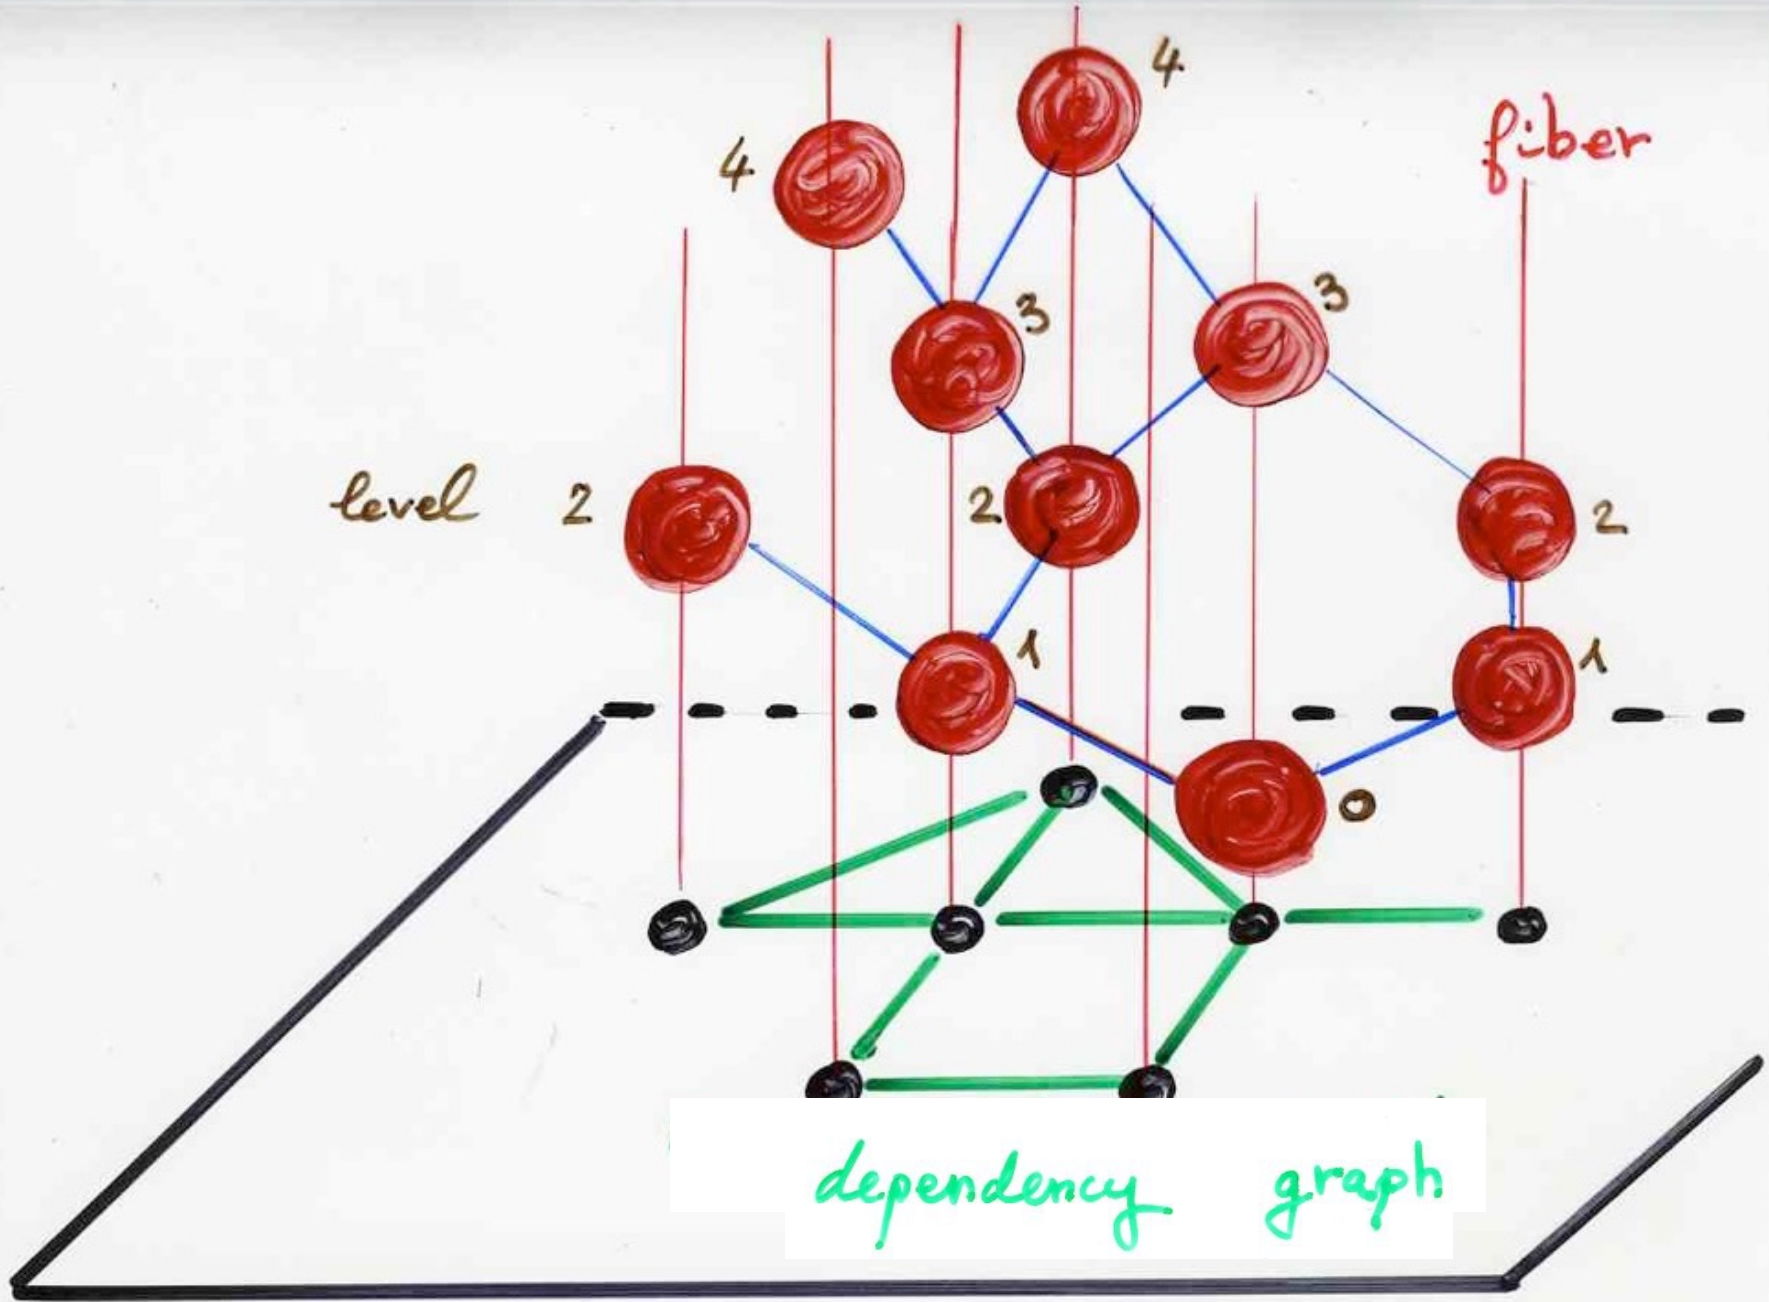 4
4
fiber
3
3
level 2
2
2
1
1
0
dependency graph